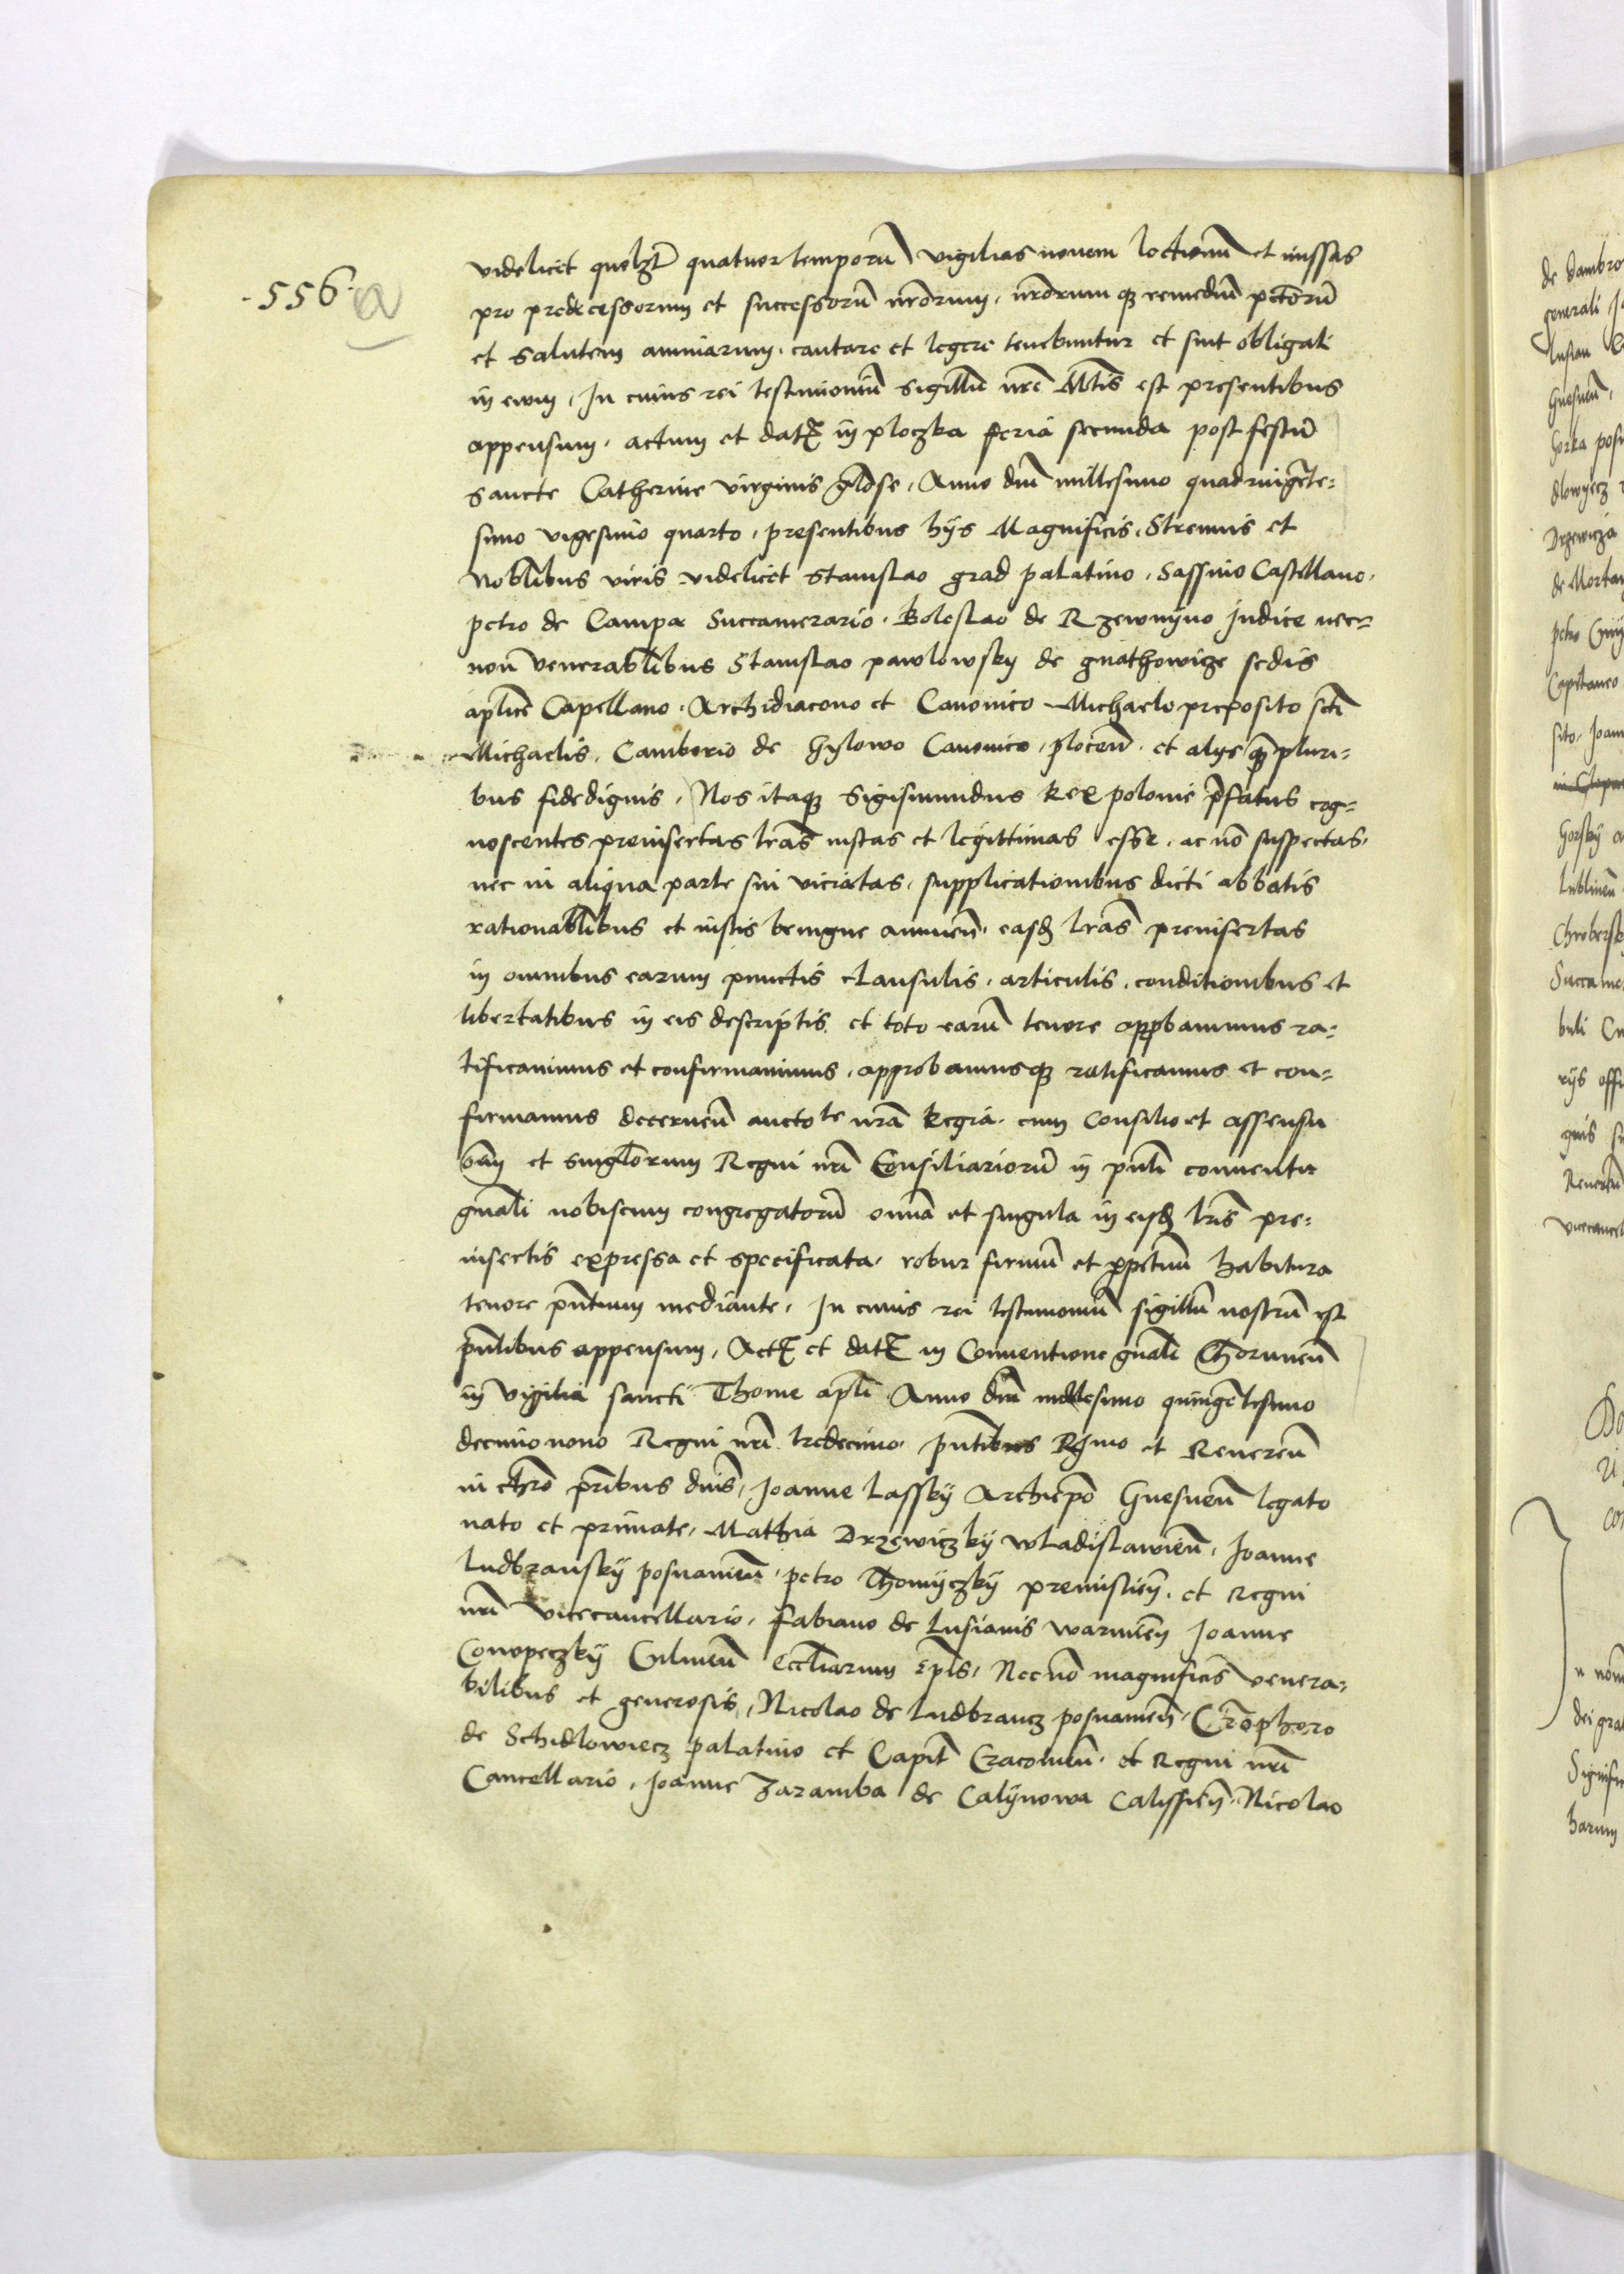 556 a
videlicet quolꝫ quatuortemporū vigilias novem lectionū et missas
pro predecessorum et successorū nr̄orum, nr̄orumqꝫ remediū pctōrū
et salutem animarum, cantare et legere tenebuntur et sint obligati
in evum, In cuius rei testimoniū sigillū nr̄e Mtīs est presentibus
appensum, actum et datꝫ in ploczka feria secunda post festū
Sancte Catherine virginis glōse, Anno dnī millesimo quadringēte=
simo vigesimo quarto, presentibus hijs Magnificis, Strenuis et
Noblībus viris videlicet Stanislao grad palatino, Sassino Castellano,
petro de Campa Succamerario, Boleslao de Rzewnijno Judice nec=
non venerablībus Stanislao pawlowsky de gnathowicze sedis
aplicē Capellano, Archidiacono et Canonico Michaele preposito sctī
Michaelis, Camberio de Gylowo Canonico, plocen̄, et alys qꝫpluri=
bus fidedignis, Nos itaqꝫ Sigismundus Rex polonie p̄fatus cog=
noscentes preinsertas lrās iustas et legittimas esse, ac nō suspectas,
nec in aliqua parte sui viciatas, supplicationibus dicti abbatis
rationablībus et iustis benigne annuen̄, easdꝫ lrās preinsertas
in omnibus earum punctis clausulis, articulis, conditionibus et
libertatibus in eis descriptis et toto earū tenore approbavimus ra=
tificavimus et confirmavimus, approbamusqꝫ ratificamus et con=
firmamus decernen̄ auctote nrā Regia, cum Consilio et assensu
oīm et singlōrum Regni nrī Consiliariorū in pntī conventu
gnālī nobiscum congregatorū omnā et singula in eisdꝫ lrīs pre=
insertis expressa et specificata, robur firmū et ppetuū habitura
tenore pn̄tium mediante, In cuius rei testimoniū sigillū nostrū est
pn̄tibus appensum, Actꝫ et datꝫ in Conventione gnālī Thorunen̄
in vigilia sancti Thome aplī Anno dnī millesimo quingētesimo
decimonono Regni nrī tredecimo, pn̄tibus Rꝫmo et Reveren̄
in chrō prībus dnīs, Joanne Lassky Archiepō Gnesnen̄ legato
nato et primate, Mathia Drzewiczky wladislawien̄, Joanne
Ludbransky posnanien̄, petro Thomyczky premislien̄, et Regni
nrī vicecancellario, fabiano de Lusianis warmien̄ Joanne
Conopeczky Culmen̄ eccliārum epīs, Necnō magnificīs venera=
bilibus et generosis, Nicolao de Ludbrancz posnanien̄, Crōphoro
de Schidlowiecz palatino et Capit̄ Cracovien̄, et Regni nrī
Cancellario, Joanne Zaramba de Calijnowa Calissien̄, Nicolao